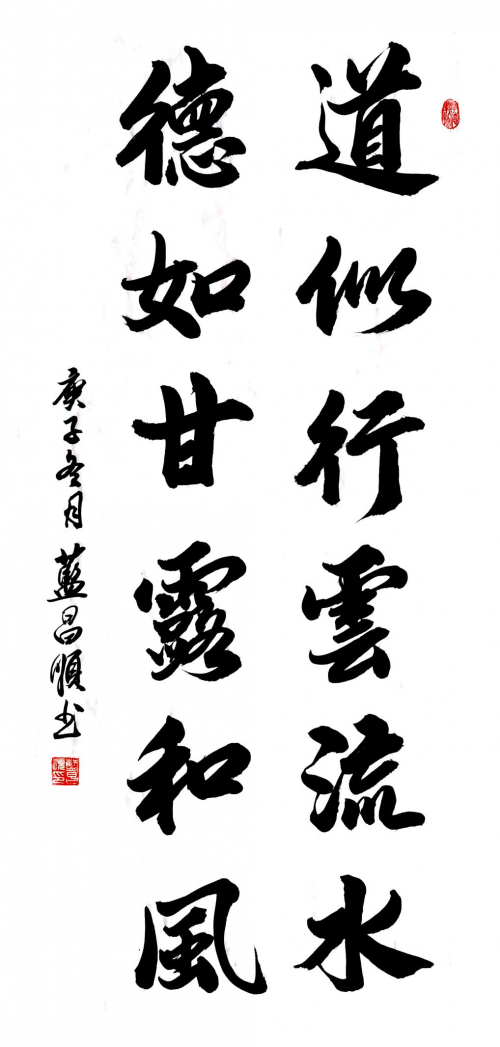 道似行雲流水
德如甘露和風
庚子冬月藍昌順书